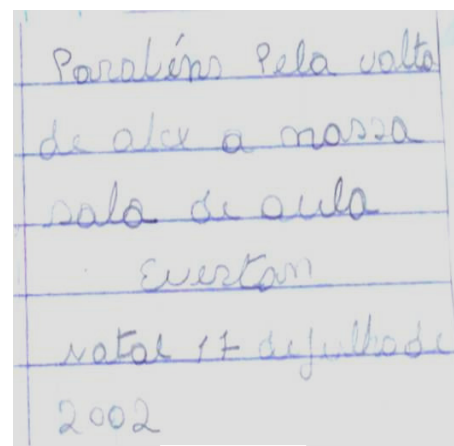 Parabéns Pela volta
de alex a nossa
sala de aula
Evertan
Natal 17 de julho de
2002